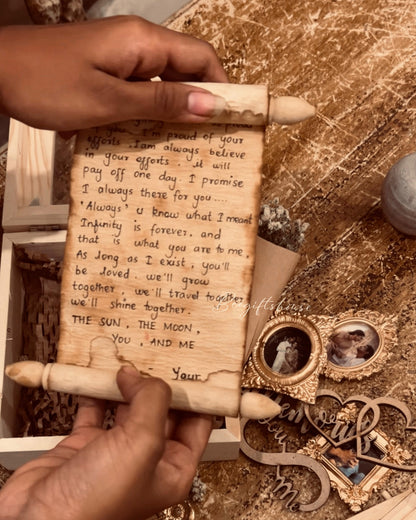 you. I'm proud of your
efforts. I am always believe
in your efforts. it will
pay off one day. I promise
I always there for you....
'Always' u know what I meant
Infinity is forever. and
that is what you are to me.
As long as I exist, you'll
be loved. we'll grow
together, we'll travel together
we'll shine together.
THE SUN, THE MOON,
YOU, AND ME
- Your